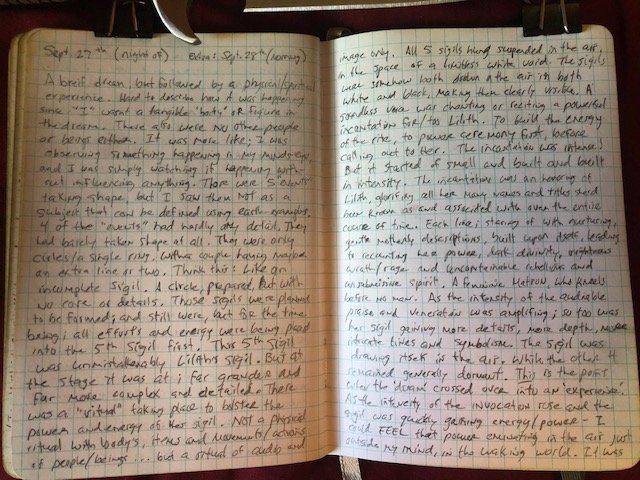 Sept. 27th (night of) Extra: Sept. 28th (morning)
A breif dream, but followed by a physical/spiritual
experience. Hard to describe how it was happening
since "I" wasnt a tangible 'body' or figure in
the dream. There also were no other people
or beings either. It was more like; I was
observing something happening in my minds-eye,
and I was simply watching it happening with-
out influencing anything. There were 5 'events'
taking shape, but I saw them NOT as a
subject that can be defined using earth-examples.
4 of the "events" had hardly any detail. They
had barely taken shape at all. They were only
circles/a single ring. With a couple having maybe
an extra line or two. Think this: Like an
incomplete sigil. A circle, prepared, but with
no core or details. Those sigils were planned
to be formed; and still were, but for the time
being; all efforts and energy were being placed
into the 5th sigil first. This 5th sigil
was unmistakenbly Lilith's sigil. But at
the stage it was at; far grander and
far more complex and detailed. There
was a "virtual" taking place to bolster the
power and energy of her sigil. Not a physical
ritual with bodys, items and movements/actions
of people/beings... but a ritual of audio and
image only. All 5 sigils hung suspended in the air,
in the space of a limitless white void. The sigils
were somehow both drawn on the air in both
white and black, making them clearly visible. A
soundless voice was chanting or reciting a powerful
incantation for/to Lilith. To build the energy
of the rite, to power ceremony first, before
calling out to Her. The incantation was intense!
But it started off small and built and built
in intensity. The incantation was an honoring of
Lilith, glorifing all her many names and titles she'd
been known as and associated with over the entire
course of time. Each line; starting of with nurturing,
gentle motherly descriptions, built upon itself, leading
to recounting her power, dark divinity, righteous
wrath/rage and uncontainable rebellious and
unsubmissive spirit. A feminine Matron, who kneels
before no man. As the intensity of the audiable
praise and veneration was amplifing; so too was
her sigil gaining more details, more depth, more
intricate lines and symbolisme. The sigil was
drawing itself in the air. While the other 4
remained generally dormant. This is the point
when the 'dream' crossed over into an 'experience'.
As the intensity of the invocation rose and the
sigil was quickly gaining energy/power - I
could FEEL that power emenating in the air just
outside my mind, in the waking world. It was